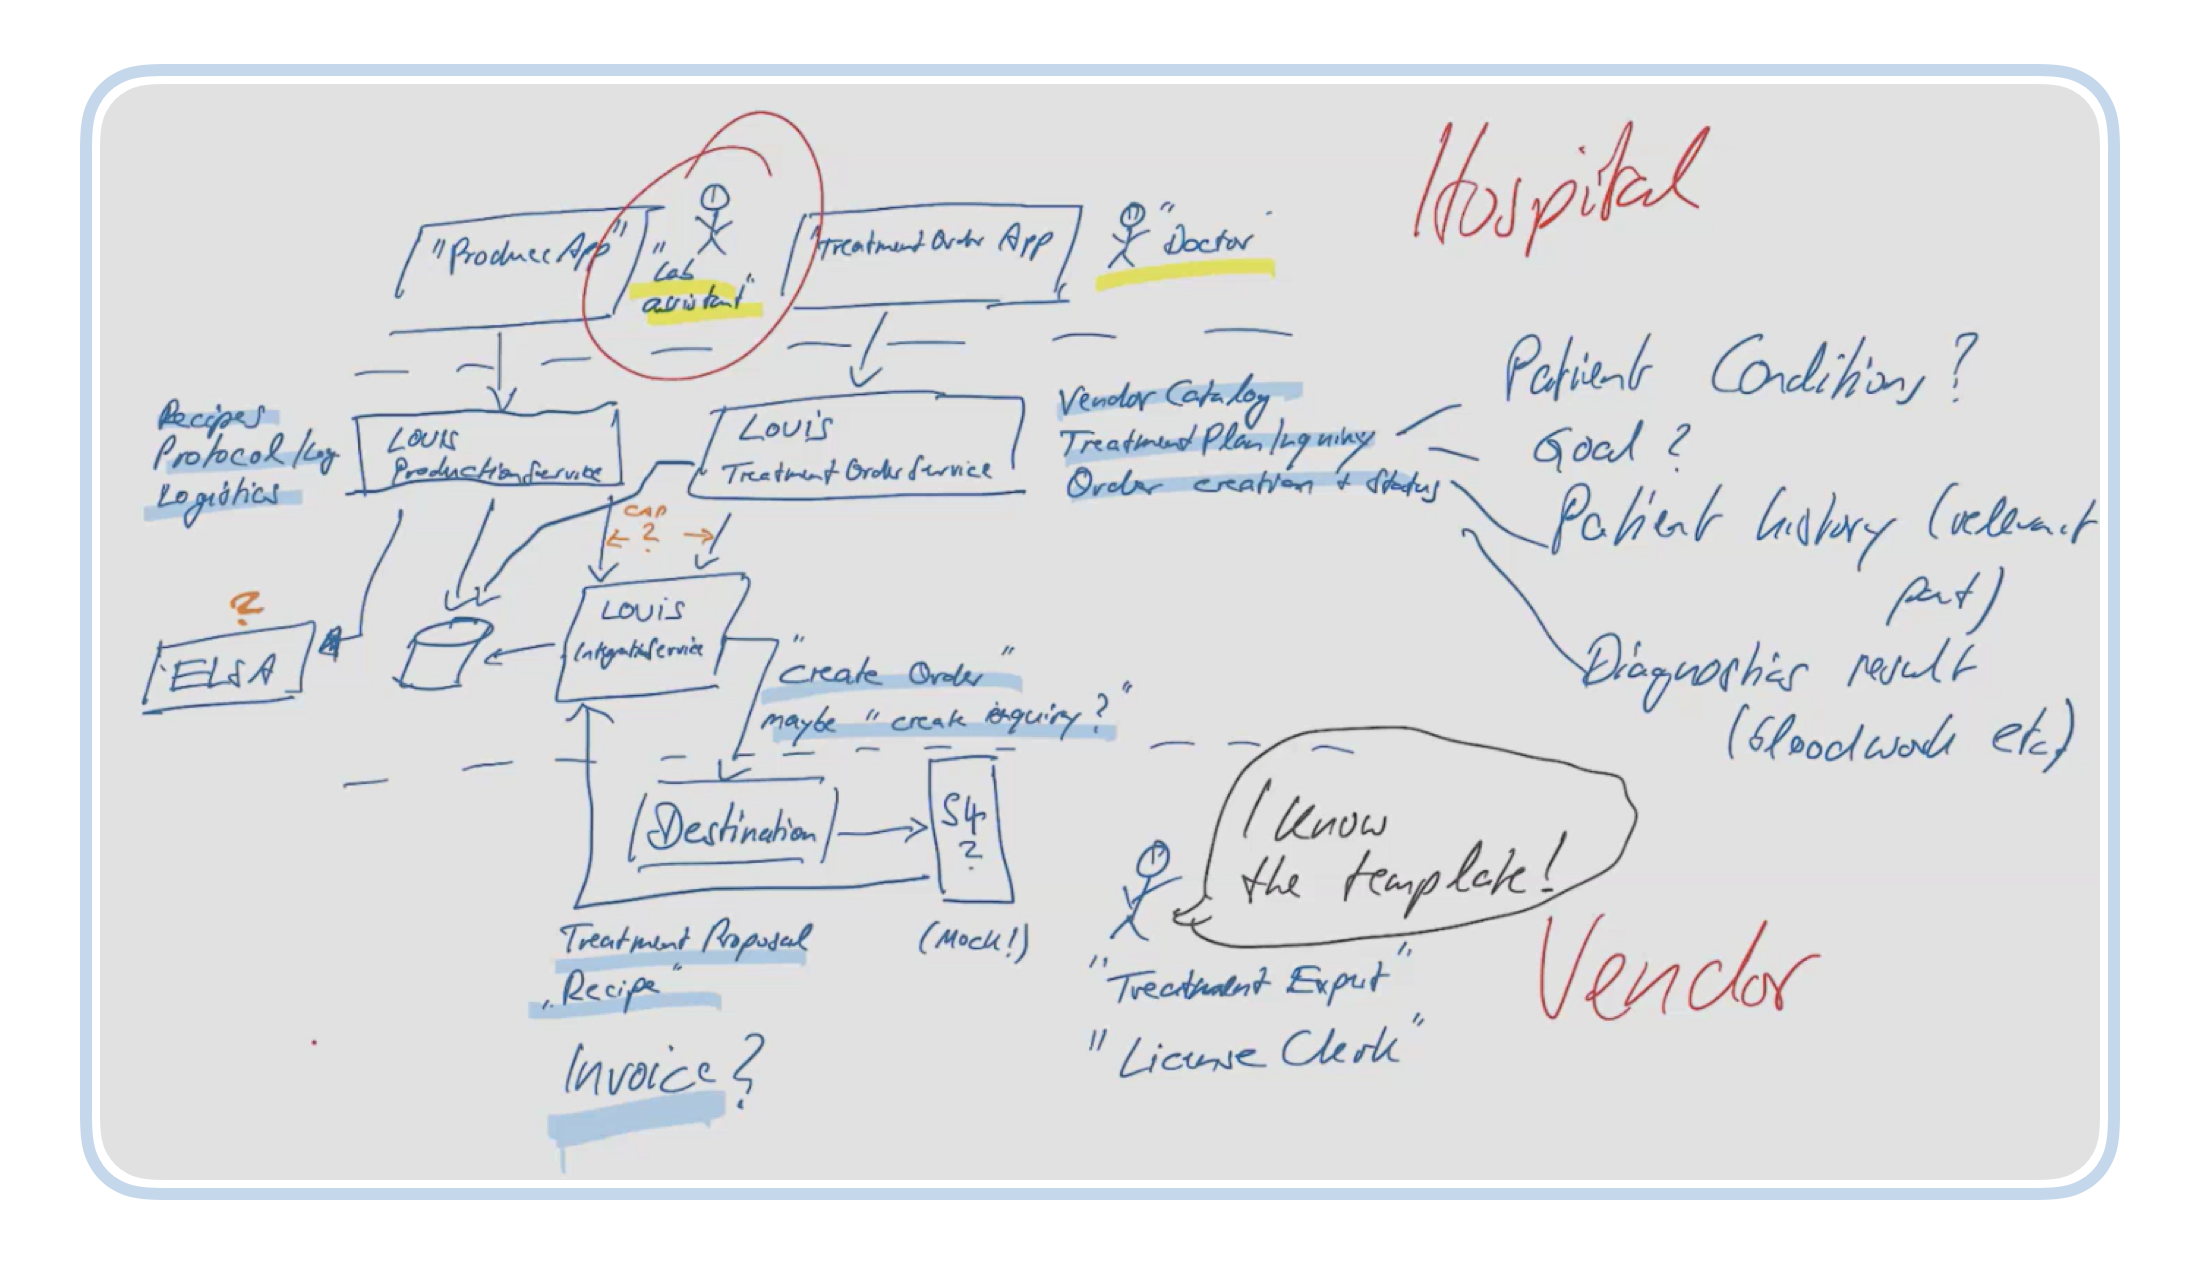 Hospital
"Produce App"
"Lab
assistant"
"Treatment Order App
"Doctor"
Recipes
Protocol/Log
Logistics
LOUIS
ProductionService
LOUIS
Treatment OrderService
Vendor Catalog
Treatment Plan/Inquiry
Order creation + Status
Patient Conditions?
Goal?
Patient history (relevant
part)
Diagnostics result
(bloodwork etc)
CAP
?
?
ELSA
LOUIS
IntegrationService
"Create Order"
maybe "create inquiry?"
Destination
S4
?
(Mock!)
I know
the template!
Treatment Proposal
"Recipe"
Invoice?
"Treatment Expert"
"License Clerk"
Vendor